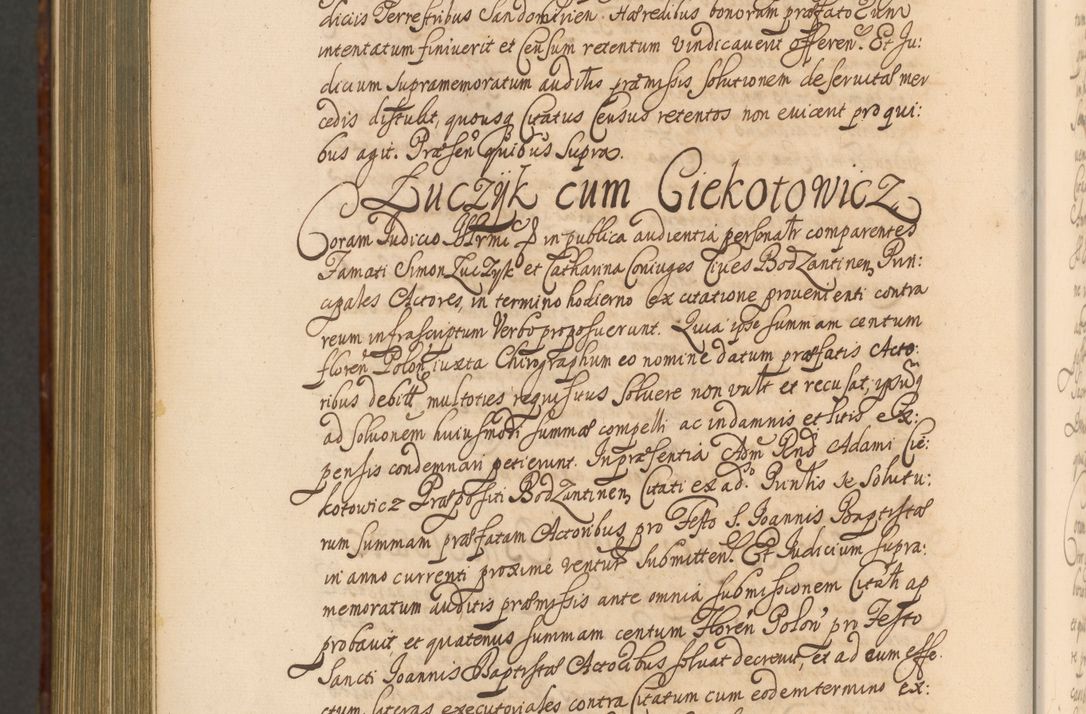 diciis Terrestribus Sandomirien. Hæredibus bonorum præfato Eum
intentatum finiverit et Censum retentum vindicaverit offeren. Et Ju:
dicium supramemoratum auditis præmissis solutionem deservitæ mer
cedis distulit, quousq Citatus Census retentos non evicent pro qui:
bus agit. Præsen quibus supra.
Łuczÿk cum Ciekotowicz
Coram Judicio in publica audientia personalr comparentes
Famati Simon Łuczÿk et Catharina Coniuges Cives Bodzantinen, Prin:
cipales Actores, in termino hodierno ex citatione provenienti contra
reum infrascriptum Verbo proposuerunt. Quia ipse summam centum
floren Polon, iuxta Chirographum eo nomine datum præfatis Acto:
ribus debitt, multoties requisitus solvere non vult et recusat, ipsumq
ad solvonem huiusmodi summæ compelli ac in damnis et litis Ex:
pensis condemnari petierunt. In præsentia Adm Rndi Adami Cie:
kotowicz Præpositi Bodzantinen, Citati ex ad. Prinlis se solutu:
rum summam præfatam Actoribus pro Festo S. Joannis Baptistæ
in anno currenti proxime ventur submitten. Et Judicium supra:
memoratum auditis præmissis ante omnia submissionem Citati ap
probavit et quatenus summam centum Floren Polon pro Festo
Sancti Joannis Baptistæ Actoribus solvat decrevit, et ad eum effe.
ctum literas executoriales contra Citatum cum eodem termino ex: